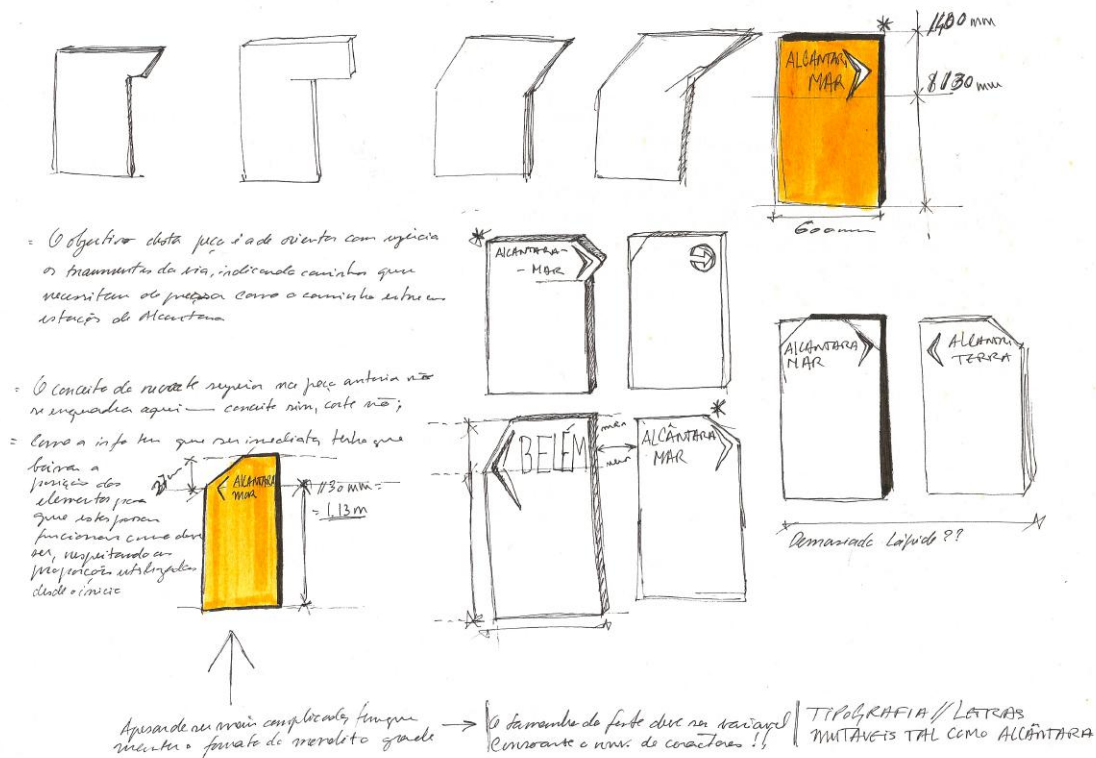 1400 mm
ALCANTARA
MAR
1130 mm
600mm
= O objectivo desta peça é a de orientar com urgência
os transeuntes da via, indicando caminhos que
necessitam de pressa como o caminho entre as
estação de Alcantara
ALCANTARA-
-MAR
= O conceito do recorte superior na peça anterior não
se enquadra aqui — conceito sim, corte não;
= Como a info tem que ser imediata tenho que
baixar a
posição dos
elementos para
que estes possam
funcionar como deve
ser, respeitando as
proporções utilizadas
desde o início
ALCANTARA
MAR
1130 mm =
= 1.13 m
BELÉM
ALCÂNTARA
MAR
ALCANTARA
MAR
ALCANTRA
TERRA
Demasiado Lápide ??
Apesar de ser mais complicado, tenho que
manter o formato do grande
O tamanho da fonte deve ser variavel
consoante o num. de caracteres !!
TIPOGRAFIA // LETRAS
MUTÁVEIS TAL COMO ALCÂNTARA